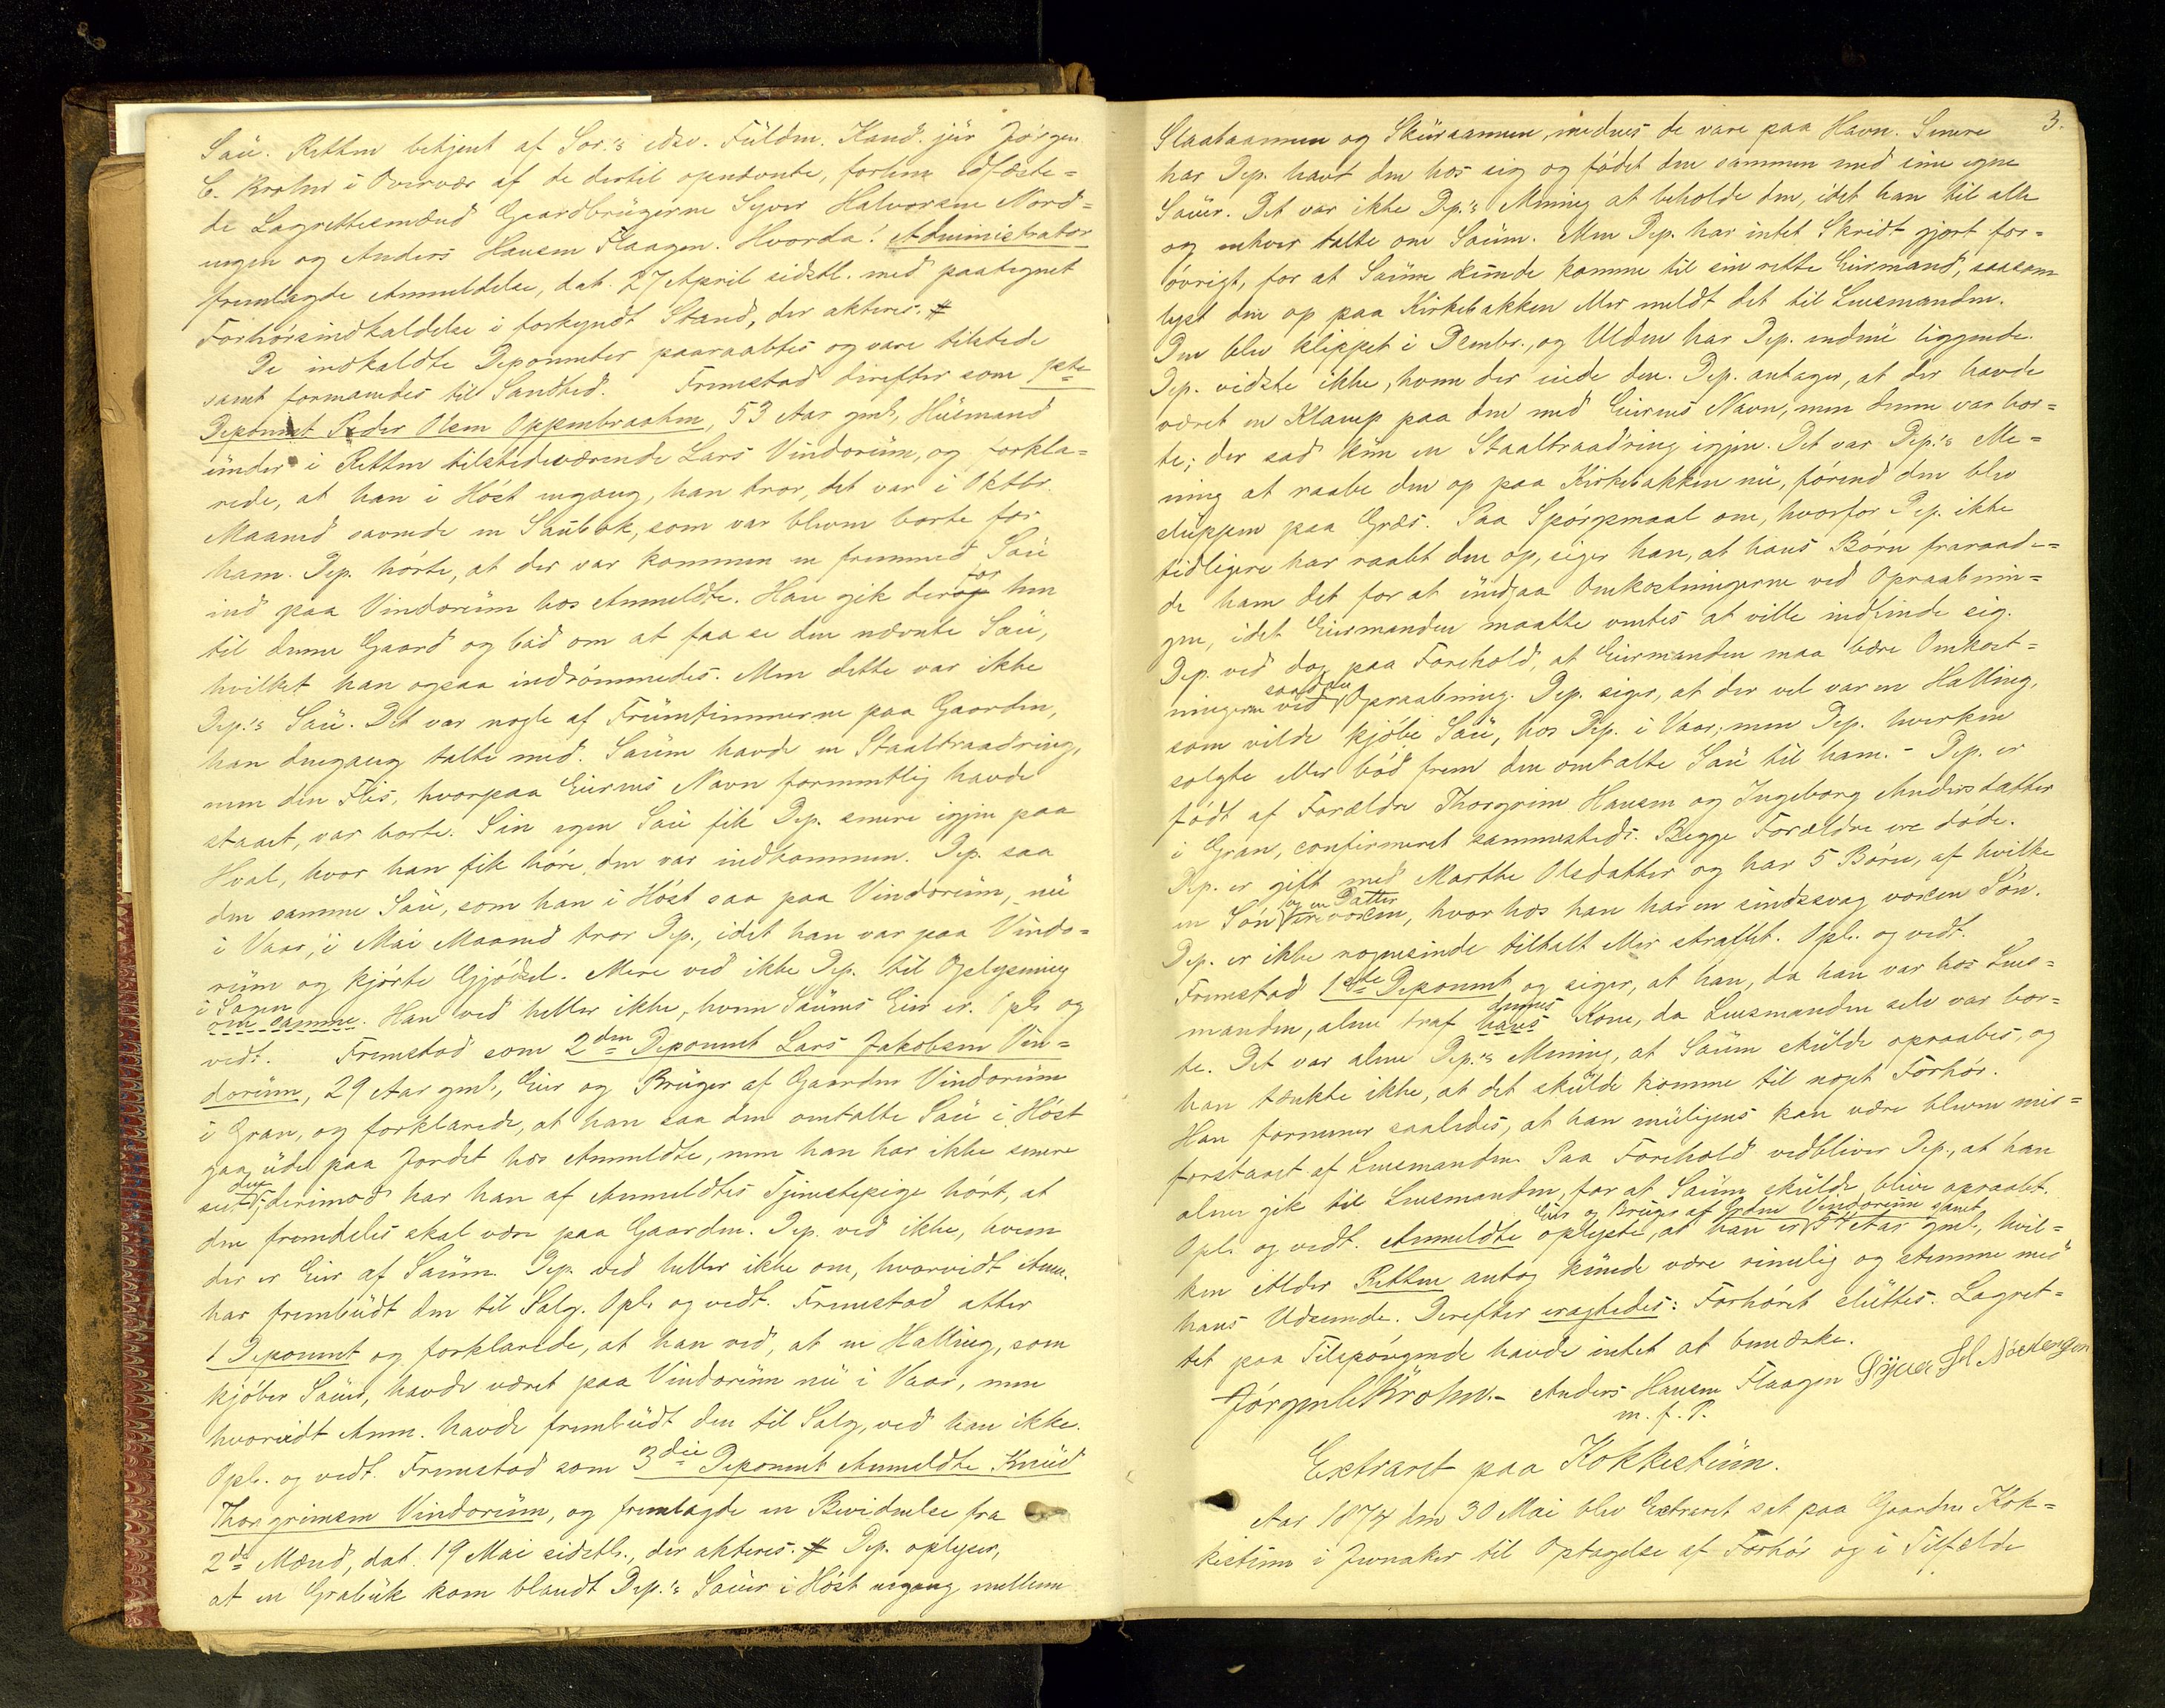 Saü. Retten betjent af Sor.'s edsv. Füldm. Kand. jür Jørgen
C. Krohn i Overvær af de dertil opnævnte, forhen edfæste=
de Lagrettesmænd Gaardbrügerne Syver Halvorsen Nord=
engen og Anders Hansen Flaagen. Hvorda! Administrator
fremlagde Anmeldelse, dat. 27 April sidstl. med paategnet
Forhørsindkaldelse i forkyndt Stand, der akteres. #
De indkaldte Deponenter paaraabtes og vare tilstede
samt formanedes til Sandhed. Fremstod derefter som 1ste
Deponent Peder Olsen Oppenbraaten, 53 Aar gml., Hüsmand
ünder i Retten tilstedeværende Lars Vindorüm, og forkla=
rede, at han i Høst engang, han tror, det var i Oktbr.
Maaned savnede en Saübok, som var bleven borte for
ham. Dep. hørte, at der var kommen en fremmed Saü
ind paa Vindorüm hos Anmeldte. Han gik derfor hen
til denne Gaard og bad om at faa se den nævnte Saü,
hvilket han ogsaa indrømmedes. Men dette var ikke
Dep.'s Saü. Det var nogle af Früentimmerne paa Gaarden,
han dengang talte med. Saüen havde en Staaltraadring,
men den Flis, hvorpaa Eierens Navn formentlig havde
staaet, var borte. Sin egen Saü fik Dep. senere igjen paa
Hval, hvor han fik høre, den var indkommen. Dep. saa
den samme Saü, som han i Høst saa paa Vindorüm, nü
i Vaar, i Mai Maaned tror Dep., idet han var paa Vindo-
rüm og kjørte Gjødsel. Mere ved ikke Dep. til Oplysning
i Sagen
om samme. Han ved heller ikke, hvem Saüens Eier er. Opl. og
vedt. Fremstod som 2den Deponent Lars Jakobsen Vin=
dorüm, 29 Aar gml., Eier og Brüger af Gaarden Vindorüm
i Gran, og forklarede, at han saa den omtalte Saü i Høst
gaa üde paa Jordet hos Anmeldte, men han har ikke senere
set den; derimod har han af Anmeldtes Tjenestepige hørt, at
den fremdeles skal være paa Gaarden. Dep. ved ikke, hvem
der er Eier af Saüen. Dep. ved heller ikke om, hvorvidt Anm.
har frembüdt den til Salg. Opl. og vedt. Fremstod atter
1 Deponent og forklarede, at han ved, at en Halling, som
kjøber Saüer, havde været paa Vindorüm nü i Vaar, men
hvorvidt Anm. havde frembüdt den til Salg, ved han ikke.
Opl. og vedt. Fremstod som 3die Deponent Anmeldte Knüd
Thorgrimsen Vindorüm, og fremlagde en Bevidnelse fra
2de Mænd, dat. 19 Mai sidstl., der akteres. # Dep. oplyser,
at en Grabük kom blandt Dep.'s Saüer i Høst engang mellem
3.
Slaataannen og Sküraannen, medens de vare paa Havn. Senere
har Dep. havt den hos sig og fødet den sammen med sine egne
Saüer. Det var ikke Dep.'s Mening at beholde den, idet han til alle
og enhver talte om Saüen. Men Dep. har intet Skridt gjort for=
øvrigt, for at Saüen künde komme til sin rette Eiermand, saasom
lyst den op paa Kirkebakken eller meldt det til Lensmanden.
Den blev klippet i Dcembr., og Ulden har Dep. endnü liggende.
Dep. vidste ikke, hvem der eiede den. Dep. antager, at der havde
været en Klamp paa den med Eierens Navn, men denne var bor=
te; der sad kün en Staaltraadring igjen. Det var Dep.'s Me=
ning at raabe den op paa Kirkebakken nü, førend den blev
slüppen paa Græs. Paa Spørgsmaal om, hvorfor Dep. ikke
tidligere har raabt den op, siger han, at hans Børn fraraade=
de ham det for at ündgaa Omkostningerne ved Opraabnin=
gen, idet Eiermanden maatte ventes at ville indfinde sig.
Dep. ved dog paa Forehold, at Eiermanden maa bære Omkost=
ningerne ved saadan Opraabning. Dep. siger, at der vel var en Halling,
som vilde kjøbe Saü, hos Dep. i Vaar; men Dep. hverken
solgte eller bød frem den omtalte Saü til ham. - Dep. er
født af Forældre Thorgrim Hansen og Ingeborg Andersdatter
i Gran, confirmeret sammesteds. Begge Forældre ere døde.
Dep. er gift med Marthe Olsdatter og har 5 Børn, af hvilke
en Søn og en Datter ere voxen, hvorhos han har en sindssvag voxen Søn.
Dep. er ikke nogensinde tiltalt eller straffet. Opl. og vedt.
Fremstod 1ste Deponent og siger, at han, da han var hos Lens=
manden, alene traf hans dennes Kone, da Lensmanden selv var bor=
te. Det var alene Dep.'s Mening, at Saüen skülde opraabes, og
han tænkte ikke, at det skülde komme til noget Forhør.
Han formener saaledes, at han müligens kan være bleven mis=
forstaaet af Lensmanden. Paa Forehold vedbliver Dep., at han
alene gik til Lensmanden, for at Saüen skülde blive opraabt.
Opl. og vedt. Anmeldte oplyste, at han er Eier og Brüger af Grden Vindorüm samt 54 Aar gml., hvil=
ken Alder Retten antog künde være rimelig og stemme med
hans Udseende. Derefter eragtedes: Forhøret slüttes. Lagret=
tet paa Tilspørgende havde intet at bemærke.
Jørgen C Krohn.- Anders Hansen Flaagen Syver Hl Nordengen
m. f. P.
Extraret paa Kokkestüen.
Aar 1874 den 30 Mai blev Extraret sat paa Gaarden Kok=
kestüen i Jevnaker til Optagelse af Forhør og i Tilfælde